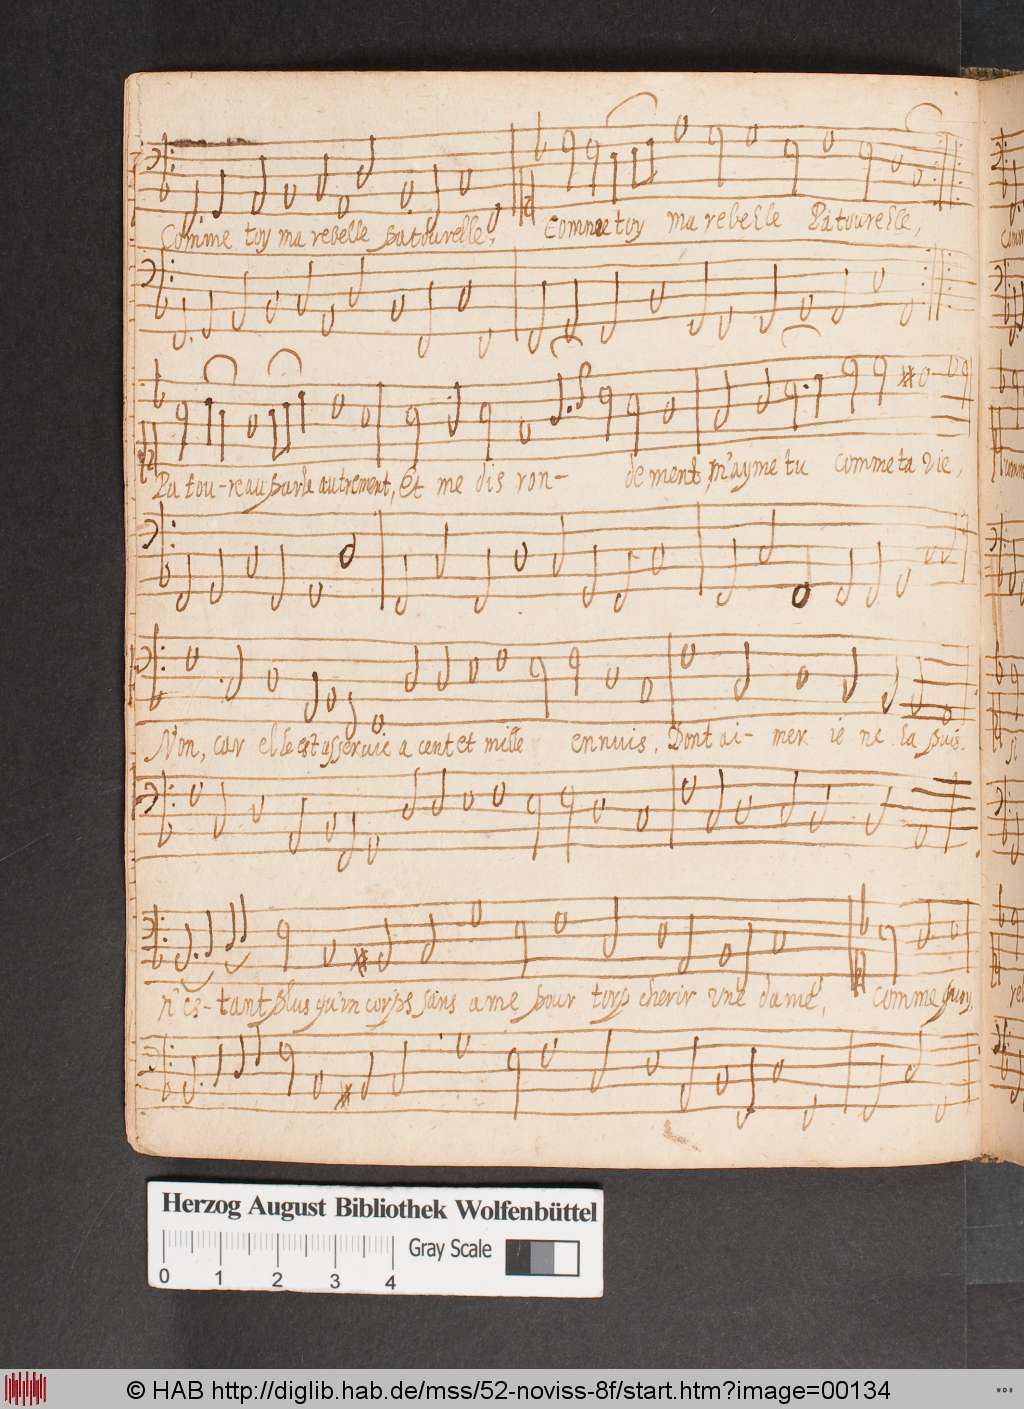 Comme toy ma rebelle patourelle, Comme toy ma rebelle Patourelle,
Pa tou-reau parle autrement, Et me dis ron- dement, m'ayme tu comme ta vie,
Non, car elle est asseruie a cent et mille ennuis, Dont ai- mer ie ne la puis.
n'es-tant plus qu'un corps sans ame pour torp cherir vne dame, comme
Herzog August Bibliothek Wolfenbüttel
Gray Scale
0 1 2 3 4
© HAB http://diglib.hab.de/mss/52-noviss-8f/start.htm?image=00134